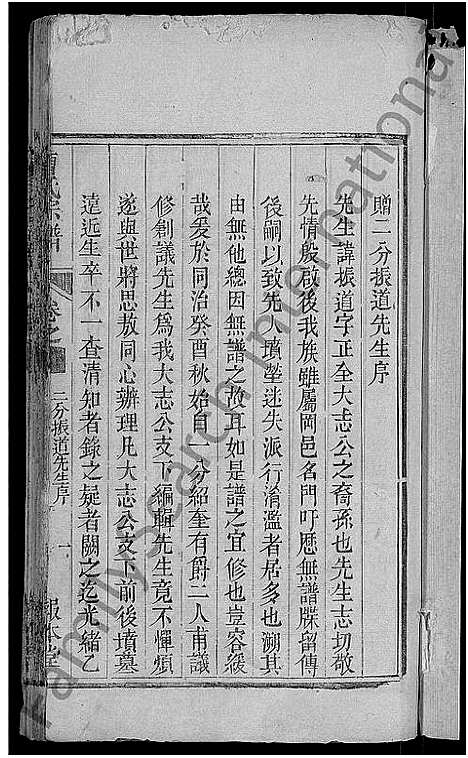 贈二分振道先生序
先生諱振道字正全大志公之裔孫也先生志切敬
先情殷啟後我族雖屬岡邑名門吁歷無譜牒留傳
後嗣以致先人墳塋迷失派行淆濫者居多也溯其
由無他總因無譜之故耳如是譜之宜修也豈容緩
哉爰於同治癸酉秋始自一分紹奎有爵二人甫議
修創議先生為我大志公支下編輯先生竟不憚煩
遂與世將思敖同心辦理凡大志公支下前後墳墓
遠近生卒不一查清知者錄之疑者闕之迄光緒乙
氏宗譜
卷之
二分振道先生序
一
報本堂
FamilySearch International